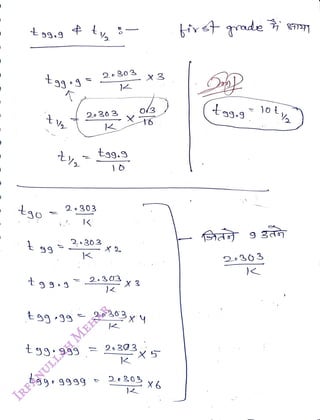 t99.9 & t1/2 :— first grade में आया
t99.9 = 2.303/K × 3
t1/2 = 2.303/K × 0.3/10
t1/2 = t99.9/10
t99.9 = 10 t1/2
t90 = 2.303/K
t99 = 2.303/K × 2
t99.9 = 2.303/K × 3
t99.99 = 2.303/K × 4
t99.999 = 2.303/K × 5
t99.9999 = 2.303/K × 6
— जितने 9 उतने
2.303/K
IRFANULLAH MEHAR